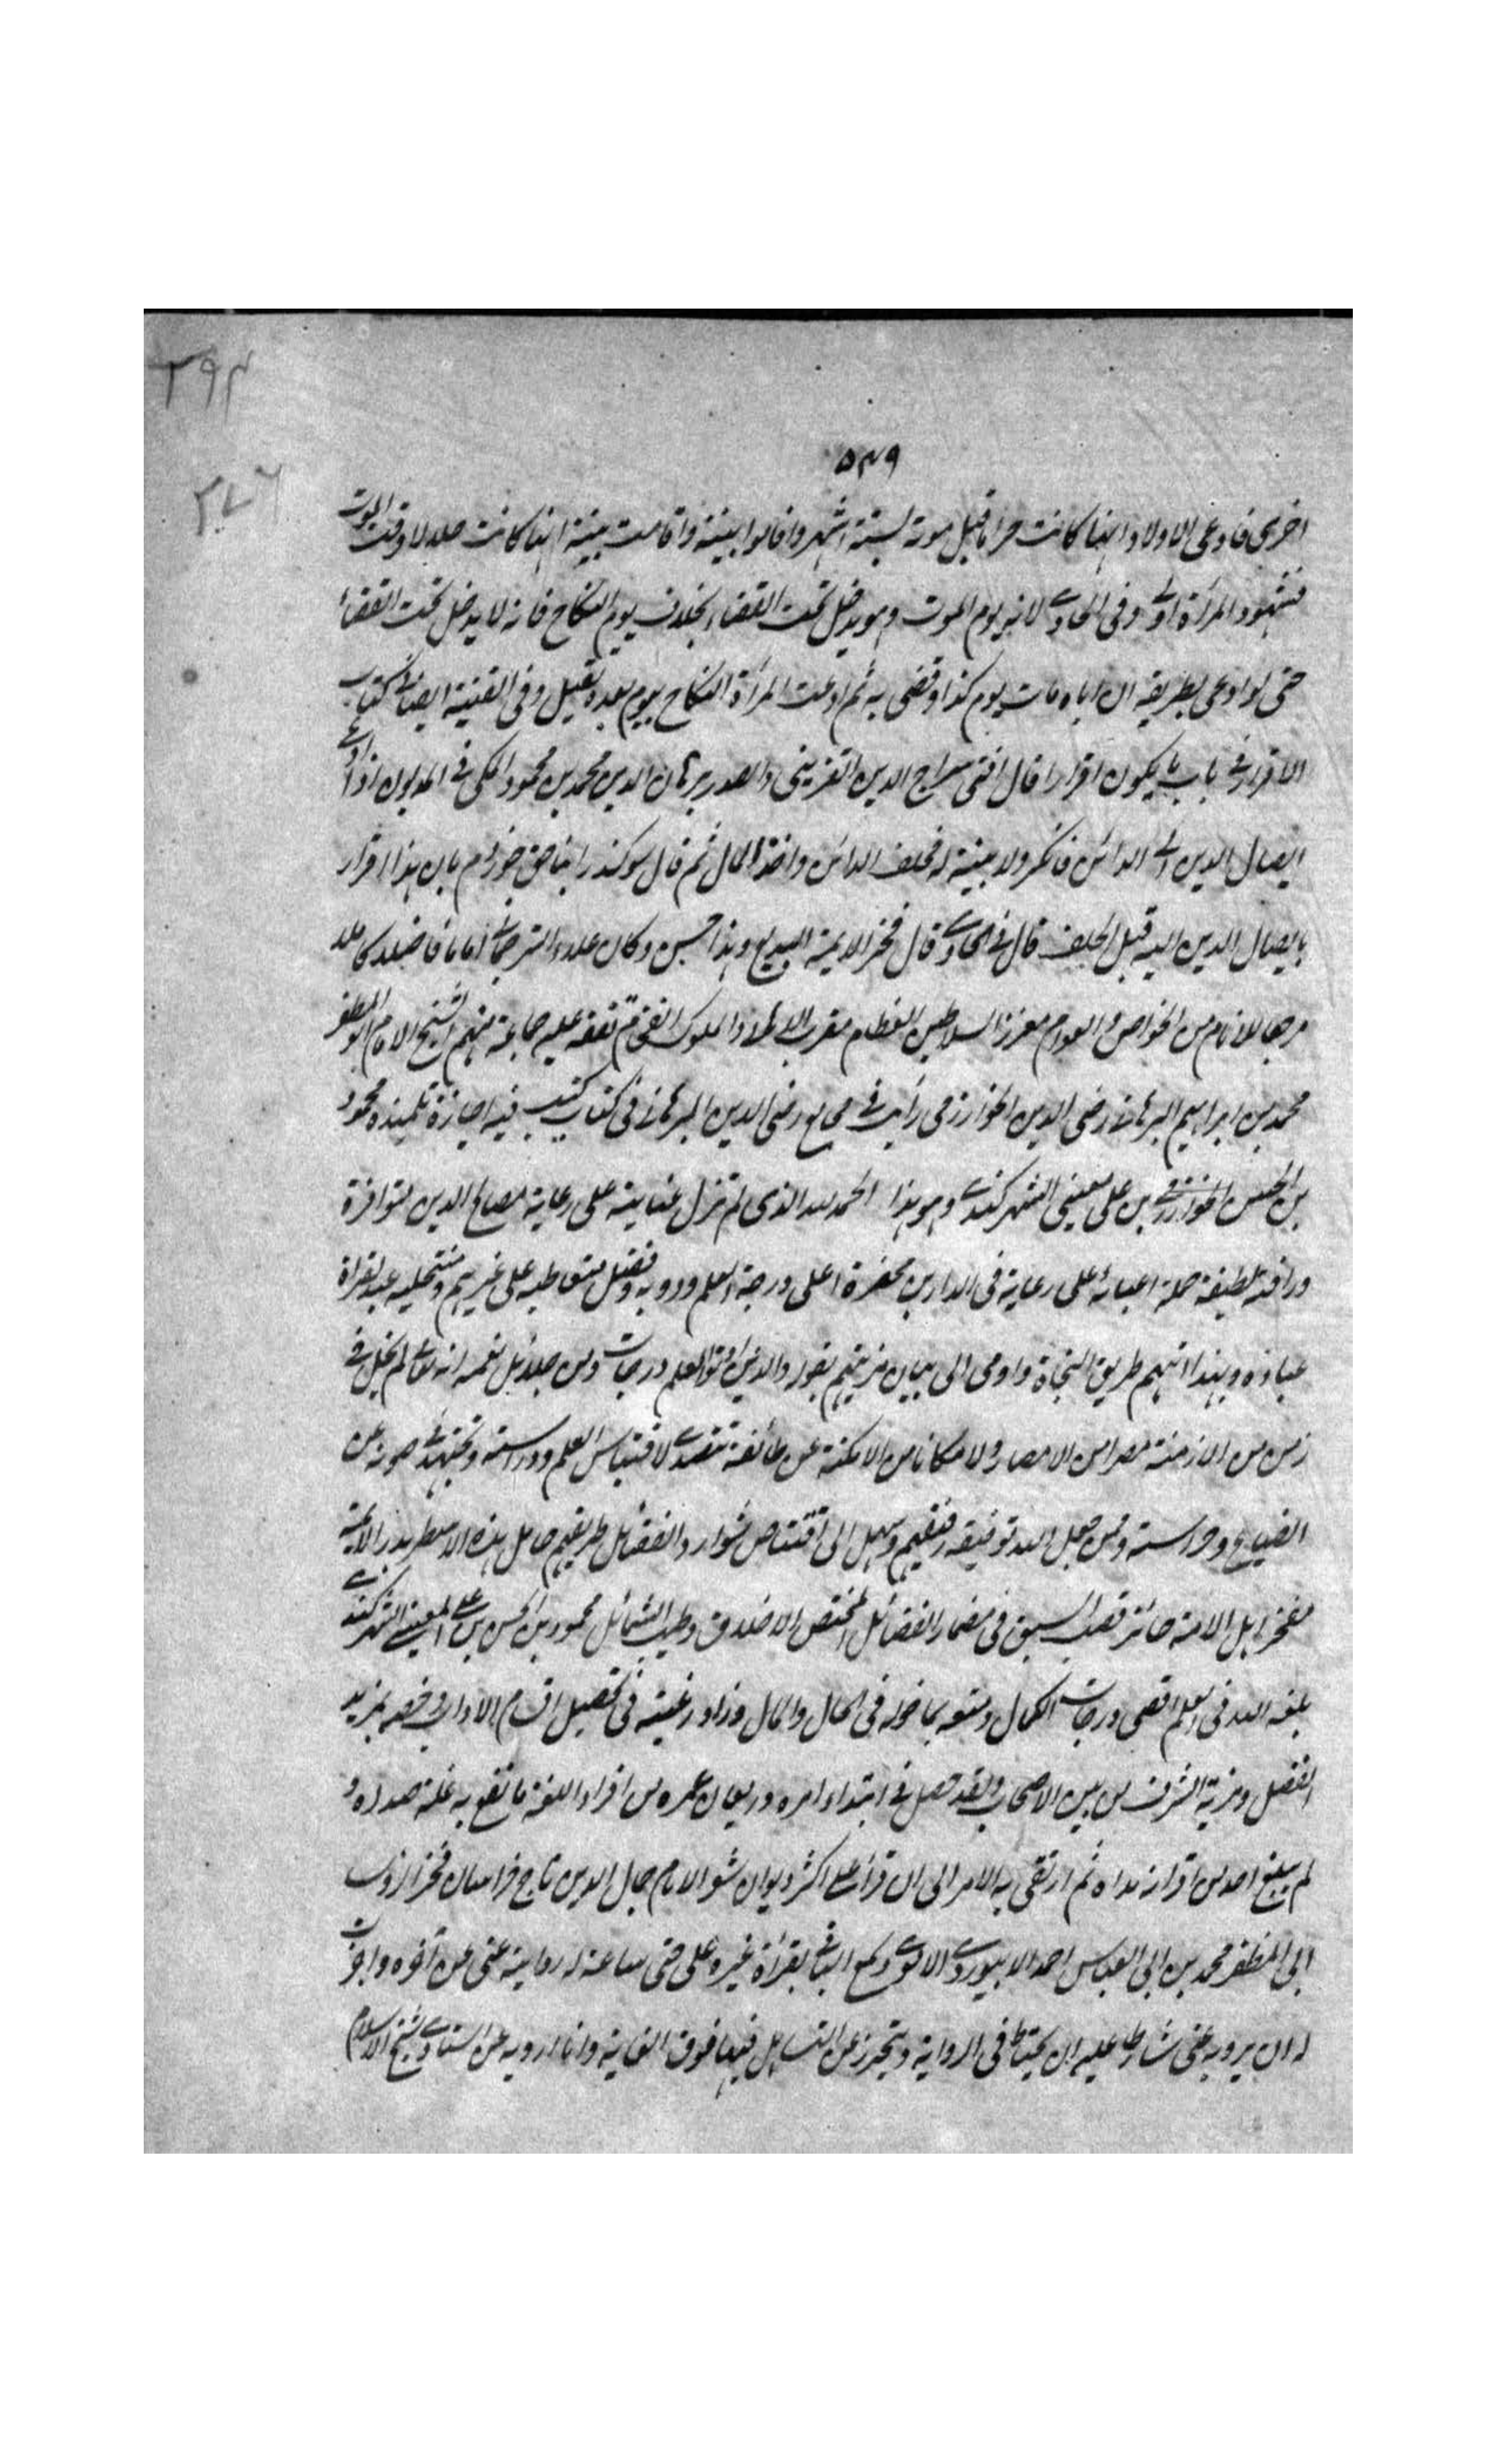 ٣٩٤
٥٤٩
٣٧٦
اخرى فادعى الاولاد انها كانت حراما قبل موته بستة اشهر واقاموا بينة واقامت بينة انها كانت حلالا وقت الموت
فشهود المرأة اولى وفى الحاوى لانه يوم الموت وهو يدخل تحت القضاء بخلاف يوم النكاح فانه لا يدخل تحت القضاء
حتى لو ادعى بطريقه ان اباه مات يوم كذا وقضى به ثم ادعت المرأة النكاح بيوم بعده تقبل وفى القنية ايضا فى كتاب
الاقرار فى باب ما يكون اقرارا قال افتى سراج الدين القزينى والصدر برهان الدين محمد بن محمود المكى فى المديون اذا ادعى
ايصال الدين الى الدائن فانكر ولا بينة له فحلف الدائن واخذ المال ثم قال سوكند را بناحق خوردم بان هذا اقرار
بايصال الدين اليه قبل الحلف قال فى الحاوى قال فخر الايمة البديع وهذا حسن وكان علاء الترجمانى اماما فاضلا كاملا
مرجعا للانام من الخواص والعوام معزز السلاطين العظام مقرب والملوك الفخام تفقه عليه جماعة منهم الشيخ الامام ابو المظفر
محمد بن ابراهيم البرهانى رضى الدين الخوارزمى رأيت فى مجامع رضى الدين البرهانى فى كتاب كتب فيه اجازة تلميذه محمود
بن الحسن الخوارزمى بن على معينى الشهركندى وهو هذا الحمد لله الذى لم تزل عنايته على رعاية مصالح الدين متوافرة
ورافة لطيفة حملة اعبائه على رعاية فى الدارين اعلى درجة العلم وذويه وفضل متعاطيه على غيرهم ومنتحليه
عباده وبهذا انهم طريق النجاة واومى الى بيان مزيتهم بقوله والذين اوتوا العلم درجات ومن جلائل نعمه انه تعالى لم يخل فى
زمن من الازمنة مصرا من الامصار ولا مكانا من الامكنة عن طائفة تتصدى لاقتباس العلم ودراسته وتجتهد فى صونه عن
الضياع وحراسته وممن جعل الله توفيقه رفيقهم وسهل الى اقتناص شوارد الفضائل طريقهم حامل هذه الاسطر بدر الائمة
مفخر اهل الامة حائز قصب السبق فى مضمار الفضائل المختص الاخلاق وطيب الشمائل محمود بن الحسن بن على المعينى الشهركندى
بلغه الله فى العلم اقصى درجات الكمال ومتعه بما خوله فى الحال والمال وزاد رغبته فى تحصيل اقسام الاداب وخصه بمزيد
الفضل ومزية الشرف من بين الاصحاب ولقد حصل فى ابتداء امره وريعان عمره من افراد اللغة ما نقع به غلة صداه و
لم يبلغ احد من اقرانه مداه ثم ارتقى به الامر الى ان قرأ على اكثر ديوان شعر الامام جمال الدين تاج خراسان فخر
ابى المظفر محمد بن ابى العباس احمد الابيوردى الاموى وسمع الباقى بقرأة غيره على حتى سماعه له رواية عنى عن آخره واجزت
له ان يرويه عنى شارطا عليه ان يحتاط فى الرواية ويتحرز عن التساهل فيها فوق الغاية وانا ارويه عن استادى شيخ الاسلام